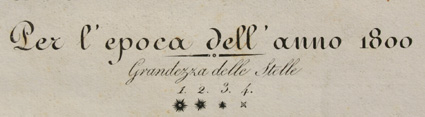 Per l'epoca dell'anno 1800
Grandezza delle Stelle
1. 2. 3. 4.